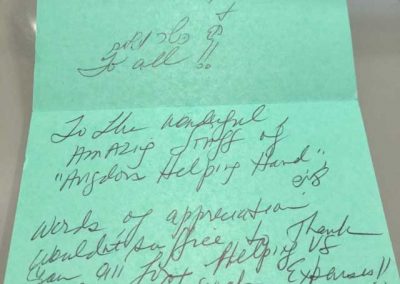 To all !!
To the wonderful
Amazing Staff of
"Angdon Helping Hand",
words of appreciation
wouldn't suffice to Thank
you all for Helping us
Expenses!!